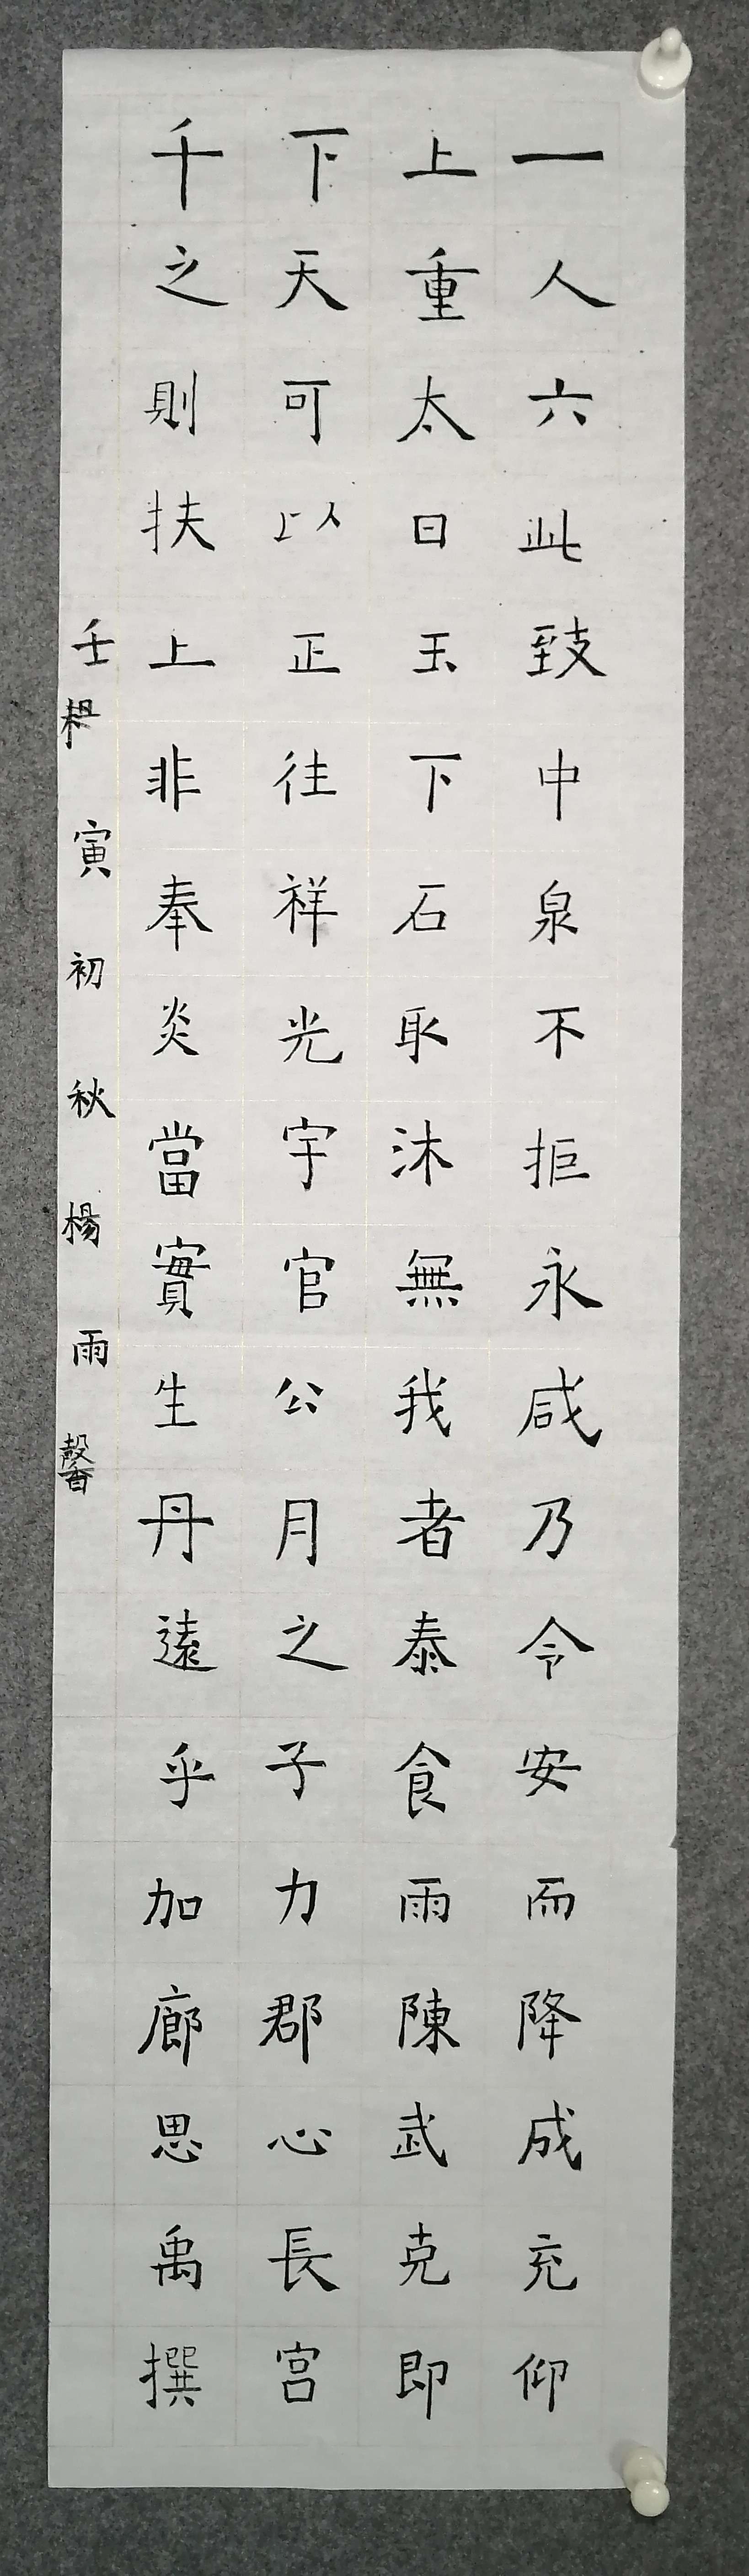 一人六此致中泉不拒永咸乃令安而降成充仰
上重太日玉下石取沐無我者泰食雨陳武克即
下天可以正往祥光宇官公月之子力郡心長宫
千之則扶上非奉炎當實生丹遠乎加廊思禹撰
壬寅初秋楊雨馨